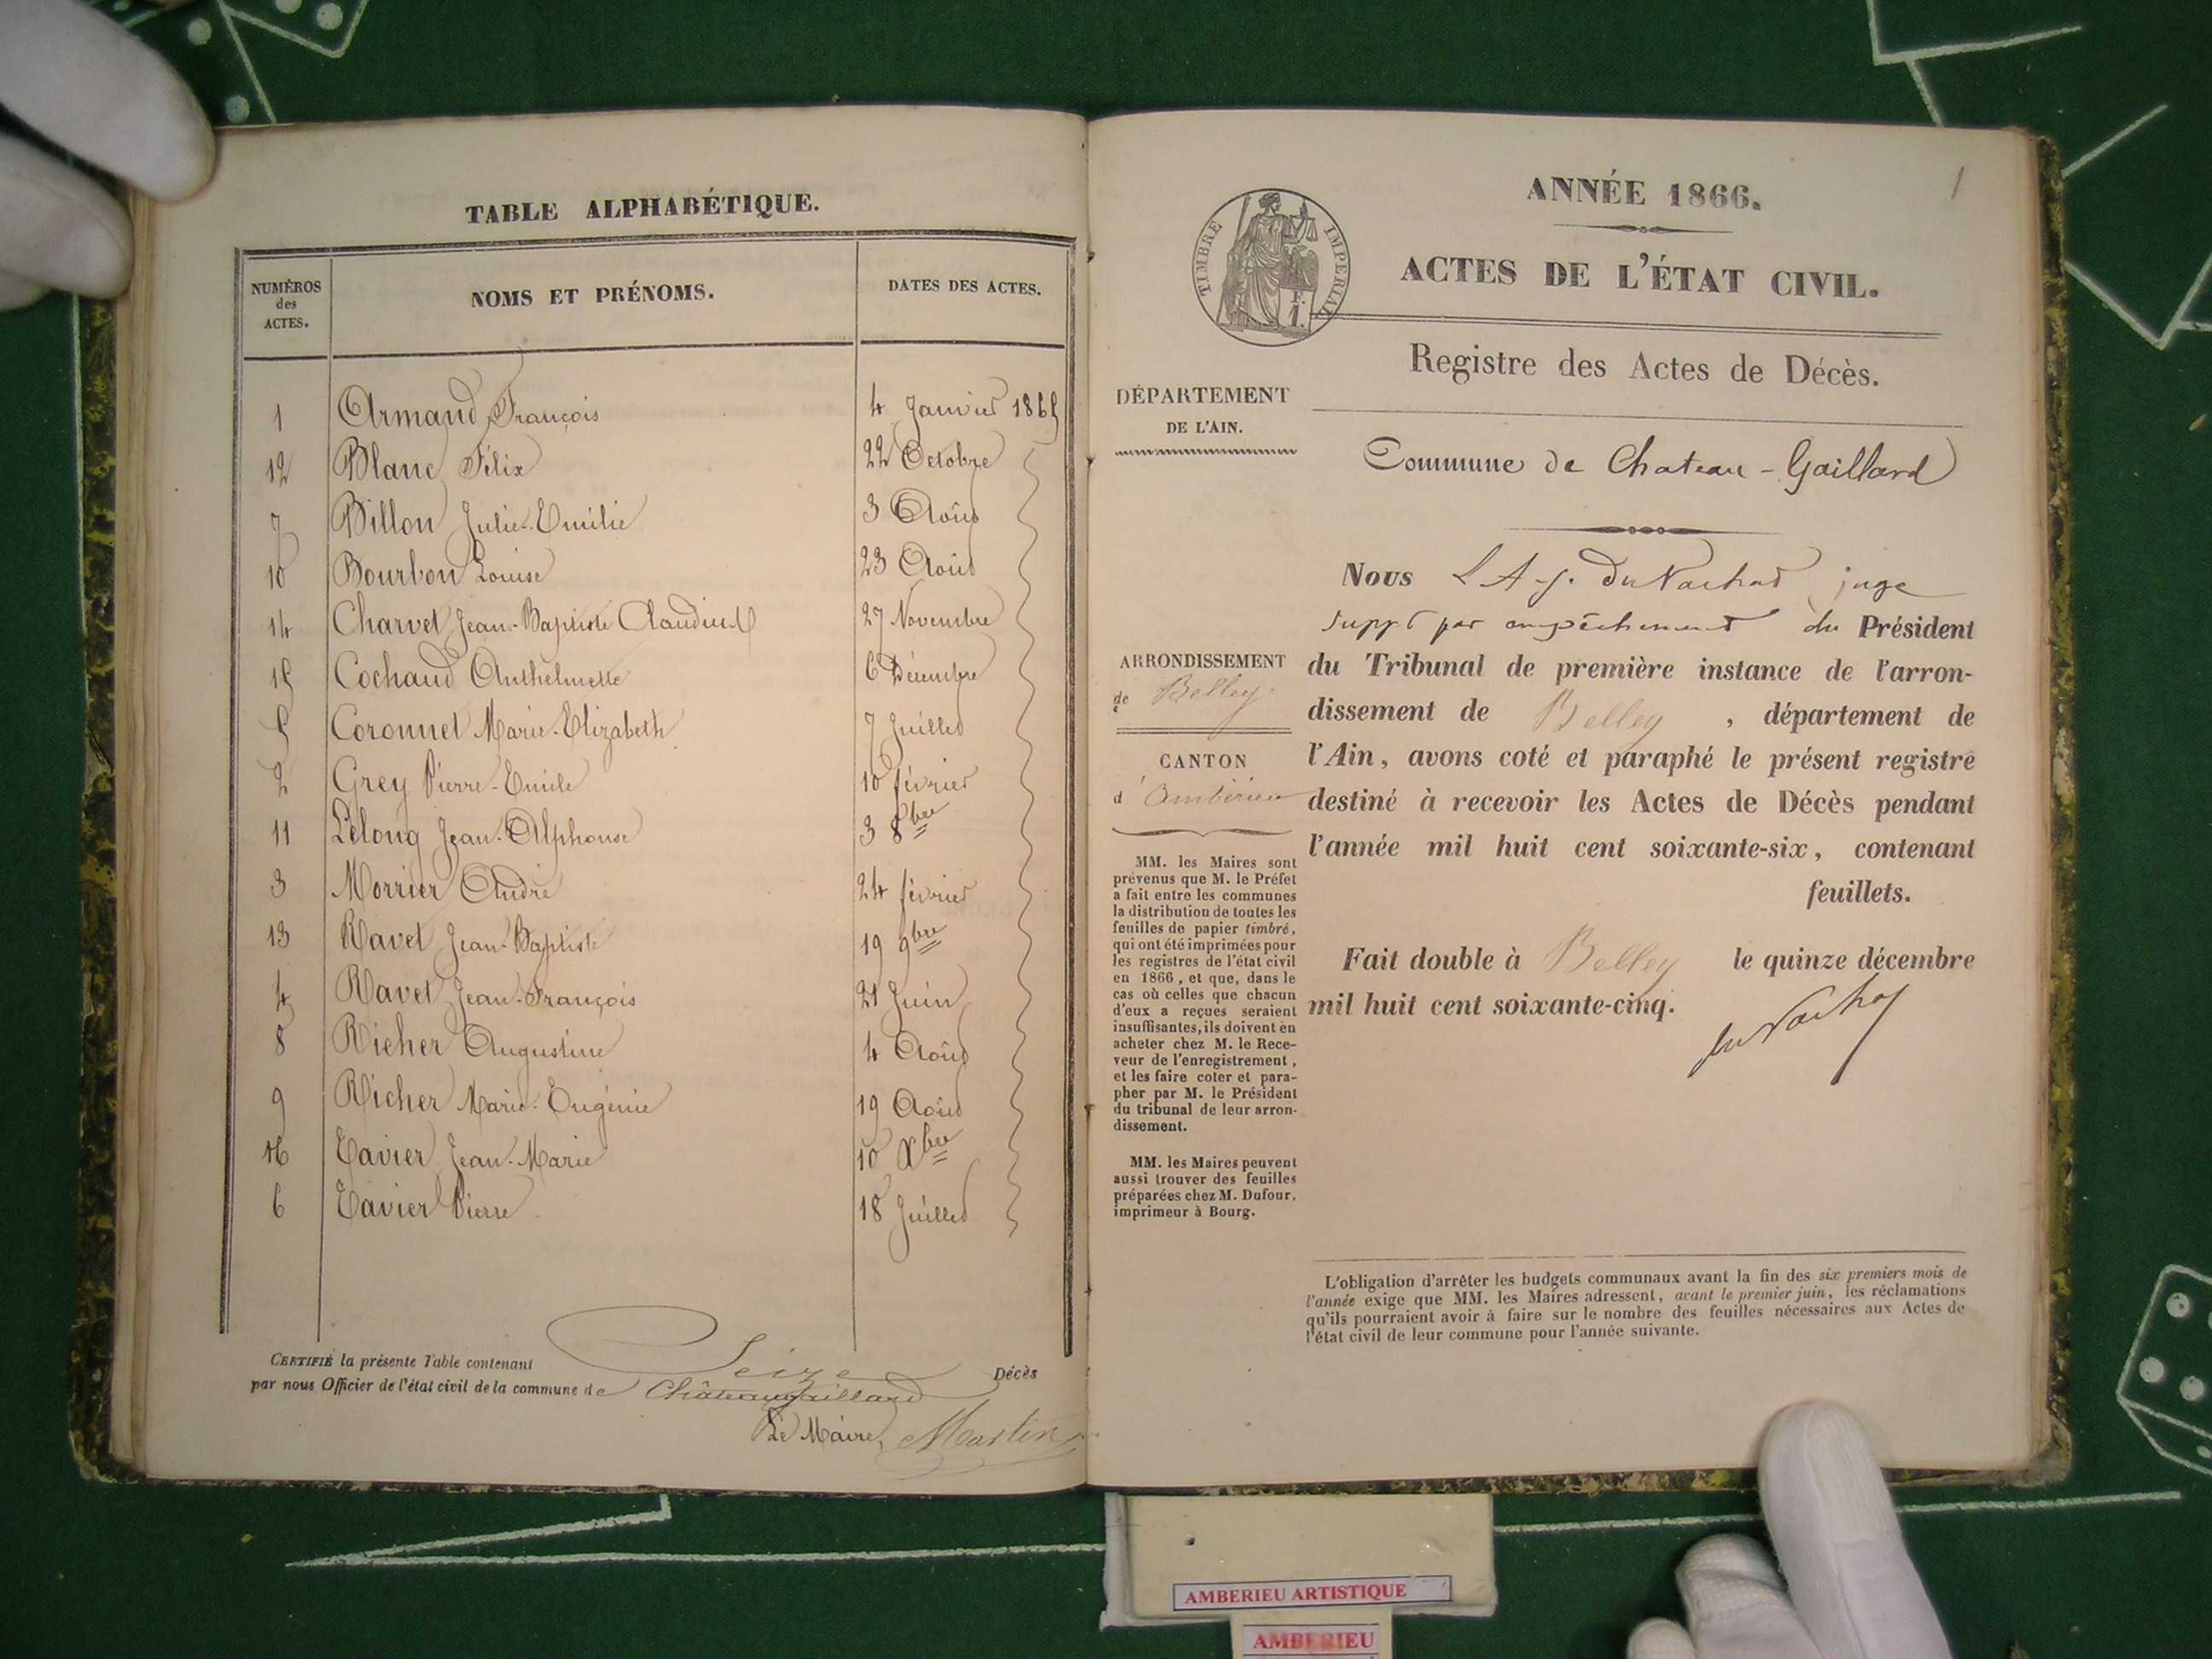 TABLE ALPHABÉTIQUE.
NUMÉROS des ACTES. NOMS ET PRÉNOMS. DATES DES ACTES.
1 Armand François 4 Janvier 1865
12 Blanc Félix 22 Octobre
7 Billon Julie-Emilie 3 Août
10 Bourbon Louise 23 Août
14 Charvet Jean-Baptiste Claudius 27 Novembre
15 Cochaud Anthelmette 6 Décembre
5 Coronnet Marie-Elizabeth 7 Juillet
2 Grey Pierre-Emile 10 février
11 Lelong Jean-Alphonse 3 8bre
3 Morrier André 24 février
13 Ravet Jean-Baptiste 19 9bre
4 Ravet Jean-François 21 Juin
8 Richer Augustine 4 Août
9 Richer Marie-Eugénie 19 Août
16 Tavier Jean-Marie 10 Xbre
6 Tavier Pierre 18 Juillet
CERTIFIÉ la présente Table contenant Seize Décès
par nous Officier de l'état civil de la commune de Châteaugaillard
Le Maire, Martin
1
ANNÉE 1866.
TIMBRE IMPERIAL
F.
1.
ACTES DE L'ÉTAT CIVIL.
Registre des Actes de Décès.
DÉPARTEMENT
DE L'AIN.
Commune de Chateau-Gaillard
ARRONDISSEMENT
de Belley
CANTON
d'Ambérieu
MM. les Maires sont
prévenus que M. le Préfet
a fait entre les communes
la distribution de toutes les
feuilles de papier timbré,
qui ont été imprimées pour
les registres de l'état civil
en 1866, et que, dans le
cas où celles que chacun
d'eux a reçues seraient
insuffisantes, ils doivent en
acheter chez M. le Rece-
veur de l'enregistrement,
et les faire coter et para-
pher par M. le Président
du tribunal de leur arron-
dissement.
MM. les Maires peuvent
aussi trouver des feuilles
préparées chez M. Dufour,
imprimeur à Bourg.
Nous juge
suppt par empêchement du Président
du Tribunal de première instance de l'arron-
dissement de Belley, département de
l'Ain, avons coté et paraphé le présent registre
destiné à recevoir les Actes de Décès pendant
l'année mil huit cent soixante-six, contenant
feuillets.
Fait double à Belley le quinze décembre
mil huit cent soixante-cinq.
L'obligation d'arrêter les budgets communaux avant la fin des six premiers mois de
l'année exige que MM. les Maires adressent, avant le premier juin, les réclamations
qu'ils pourraient avoir à faire sur le nombre des feuilles nécessaires aux Actes de
l'état civil de leur commune pour l'année suivante.
AMBERIEU ARTISTIQUE
AMBERIEU